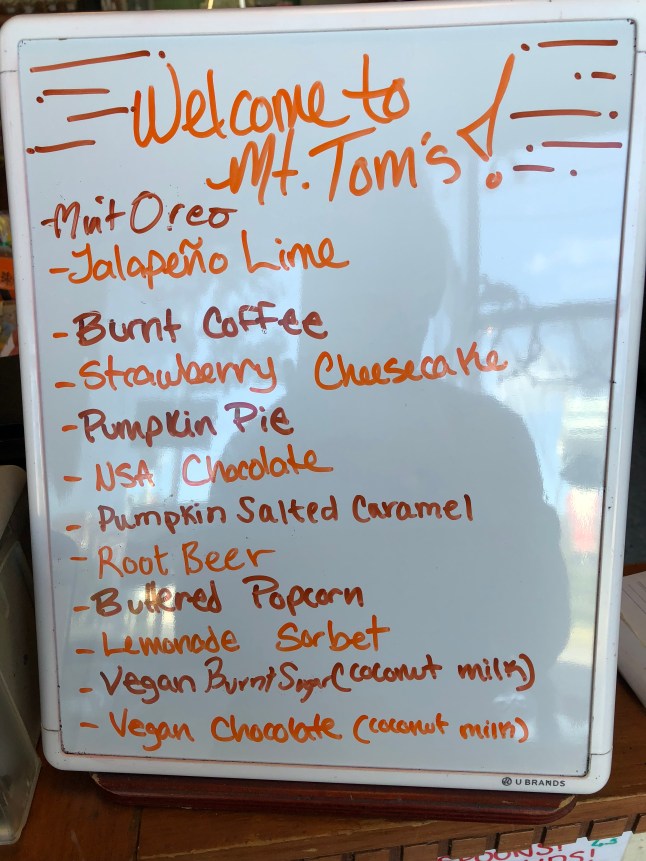 Welcome to
Mt. Tom's!
-Mint Oreo
-Jalapeño Lime
-Burnt Coffee
-Strawberry Cheesecake
-Pumpkin Pie
- NSA Chocolate
- Pumpkin Salted Caramel
- Root Beer
-Buttered Popcorn
- Lemonade Sorbet
- Vegan Burnt Sugar (coconut milk)
- Vegan Chocolate (coconut milk)
U BRANDS